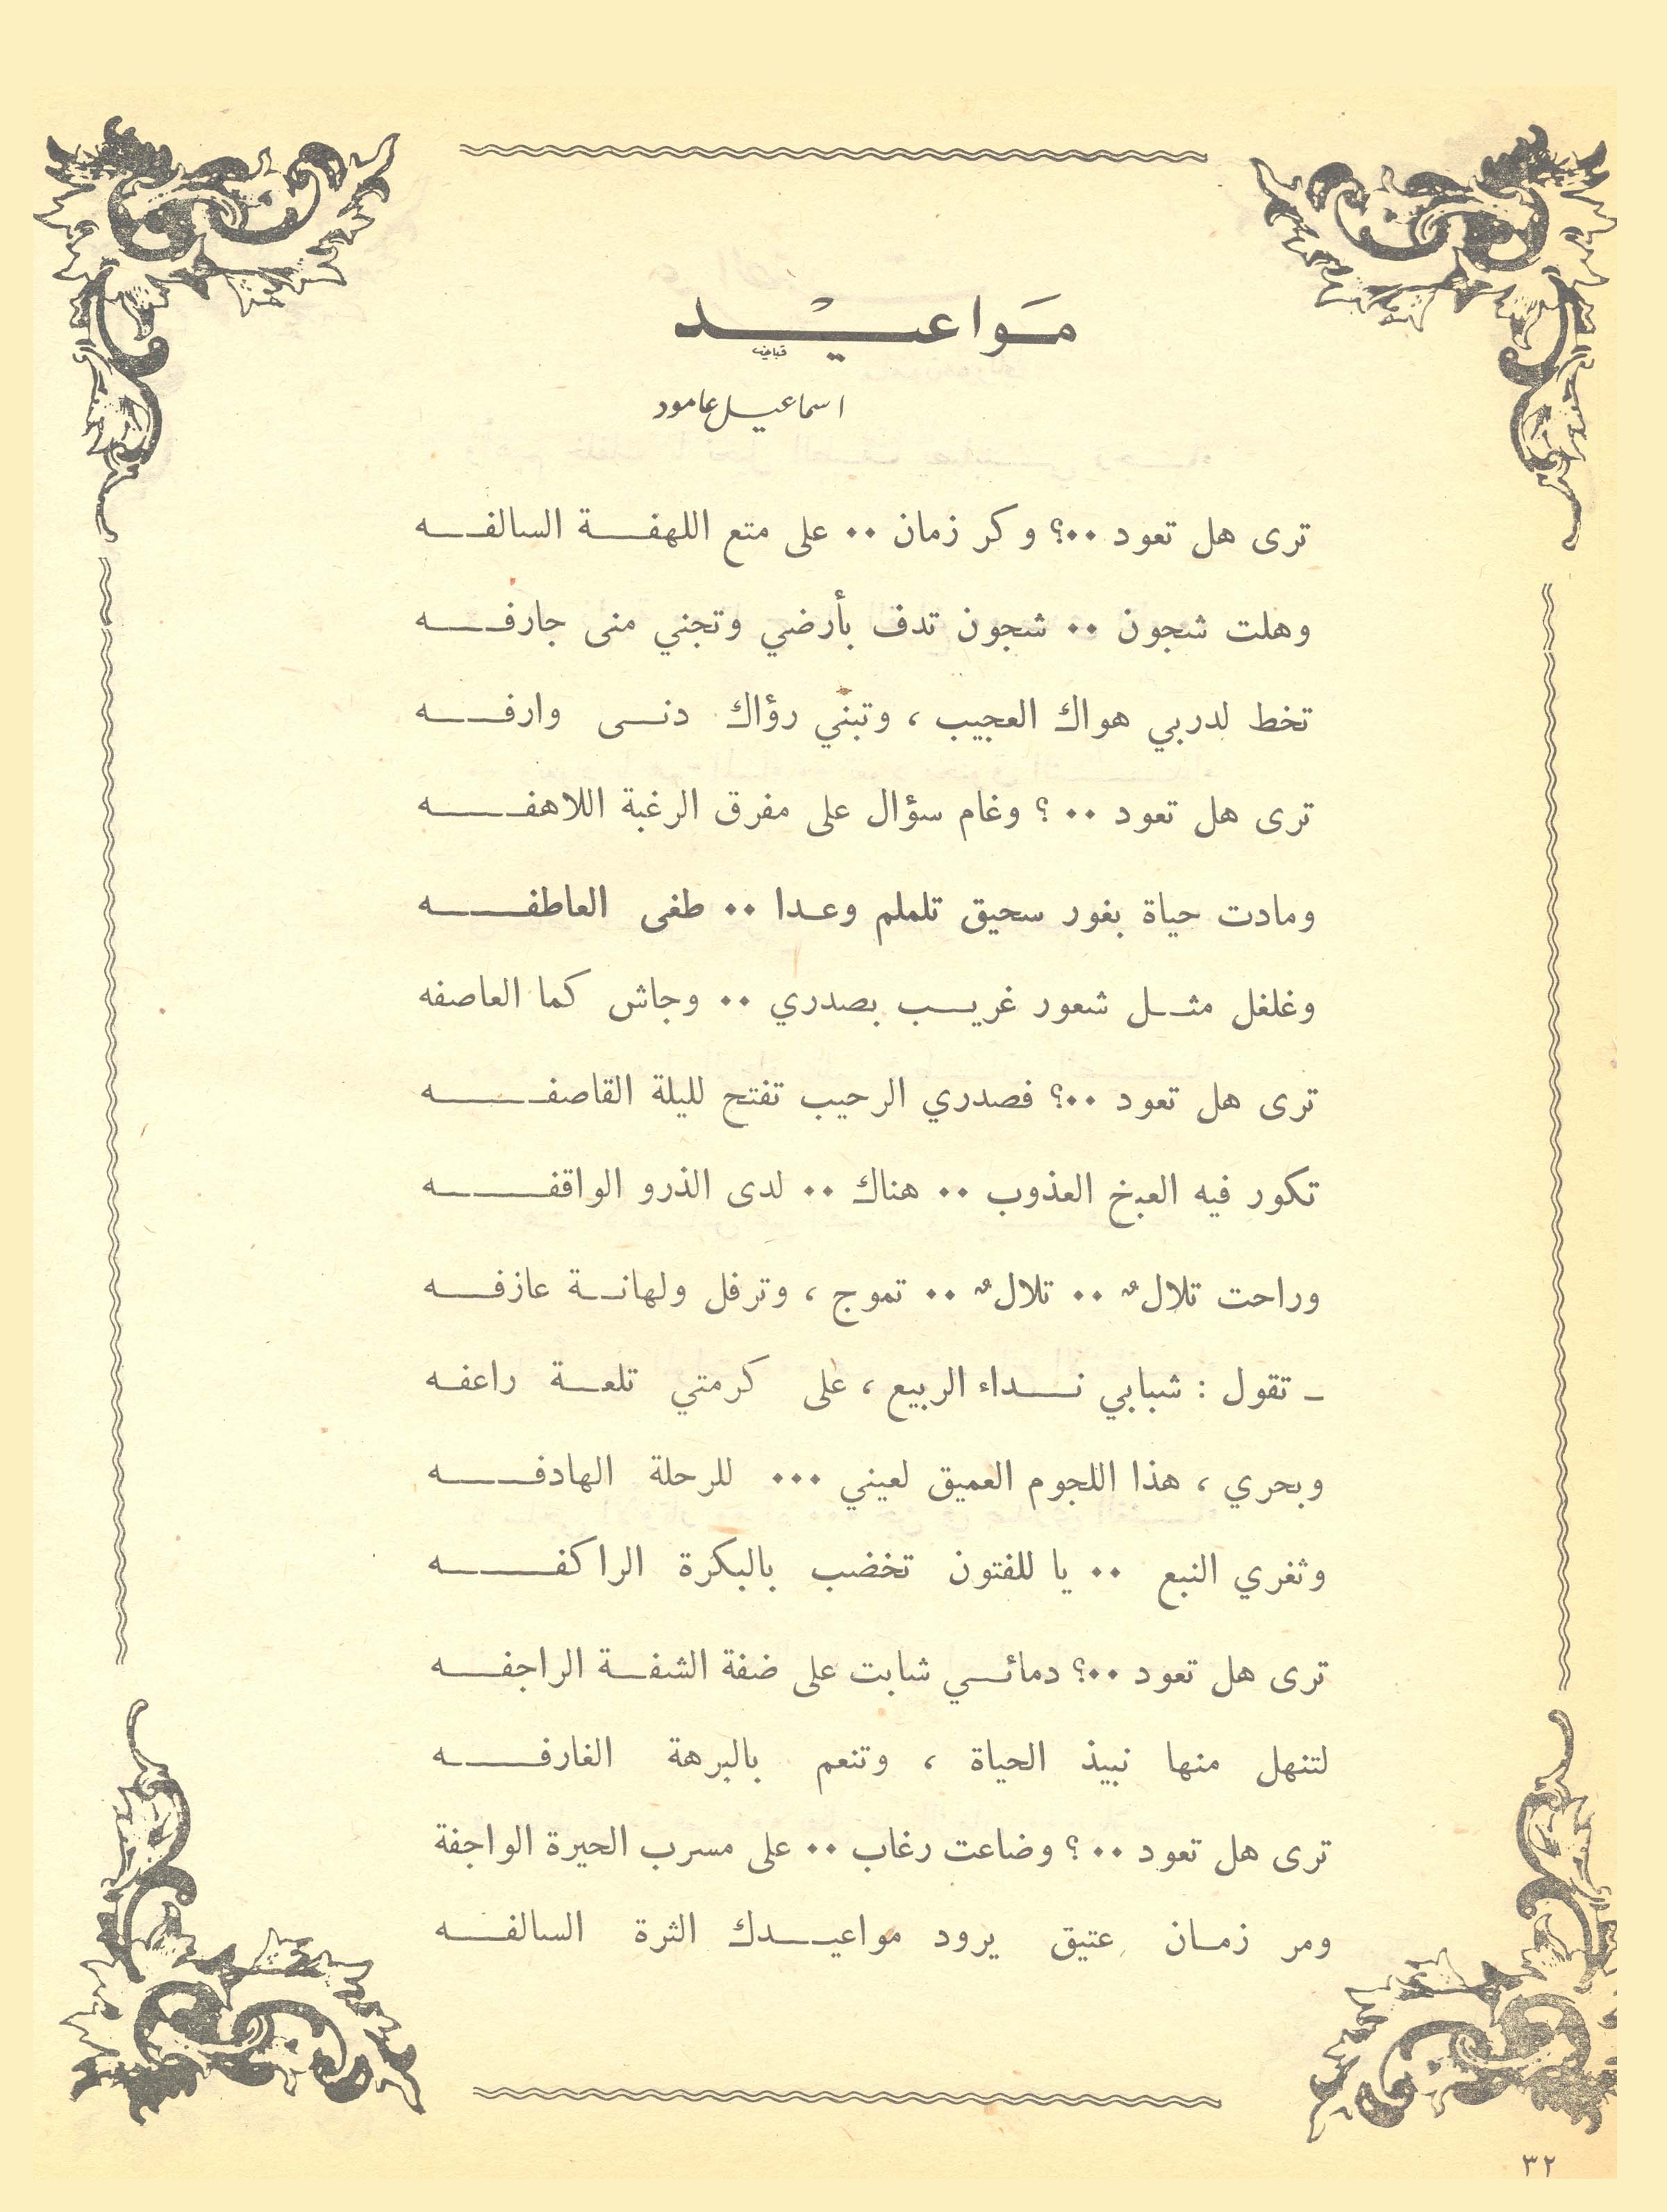 مَواعيْد
قباني
اسماعيل عامود
ترى هل تعود ٠٠؟ وكر زمان ٠٠ على متع اللهفة السالفه
وهلت شجون ٠٠ شجون تدف بأرضي وتجني منى جارفه
تخط لدربي هواك العجيب ، وتبني رؤاك دنى وارفه
ترى هل تعود ٠٠ ؟ وغام سؤال على مفرق الرغبة اللاهفه
ومادت حياة بغور سحيق تلملم وعدا ٠٠ طغى العاطفه
وغلغل مثل شعور غريب بصدري ٠٠ وجاش كما العاصفه
ترى هل تعود ٠٠؟ فصدري الرحيب تفتح لليلة القاصفه
تكور فيه العبخ العذوب ٠٠ هناك ٠٠ لدى الذرو الواقفه
وراحت تلالٌ ٠٠ تلالٌ ٠٠ تموج ، وترفل ولهانة عازفه
ـ تقول : شبابي نداء الربيع ، على كرمتي تلعة راعفه
وبحري ، هذا اللجوم العميق لعيني ٠٠٠ للرحلة الهادفه
وثغري النبع ٠٠ يا للفتون تخضب بالبكرة الراكفه
ترى هل تعود ٠٠؟ دمائي شابت على ضفة الشفة الراجفه
لتنهل منها نبيذ الحياة ، وتنعم بالبرهة الغارفه
ترى هل تعود ٠٠ ؟ وضاعت رغاب ٠٠ على مسرب الحيرة الواجفة
ومر زمان عتيق يرود مواعيدك الثرة السالفه
٣٢